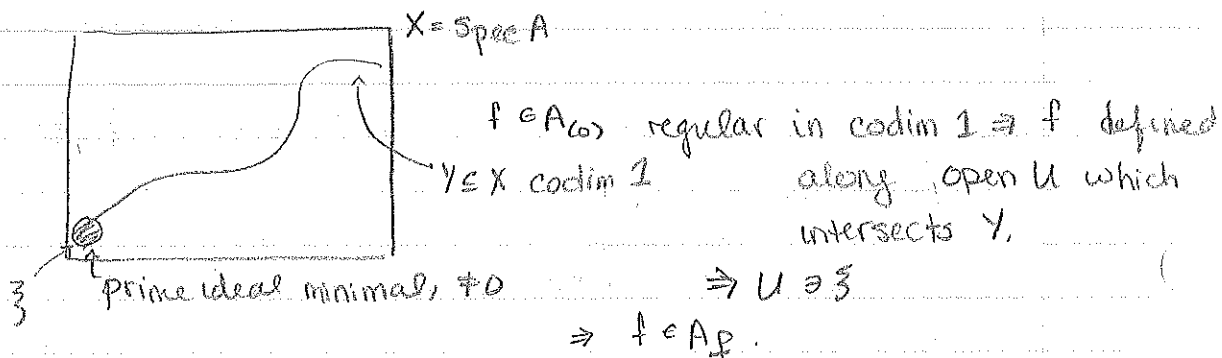 X = Spec A
f ∈ A₍₀₎ regular in codim 1 ⇒ f defined
Y ⊆ X codim 1 along open U which
intersects Y.
ξ prime ideal minimal, ≠0 ⇒ U ∋ ξ
⇒ f ∈ A_p.